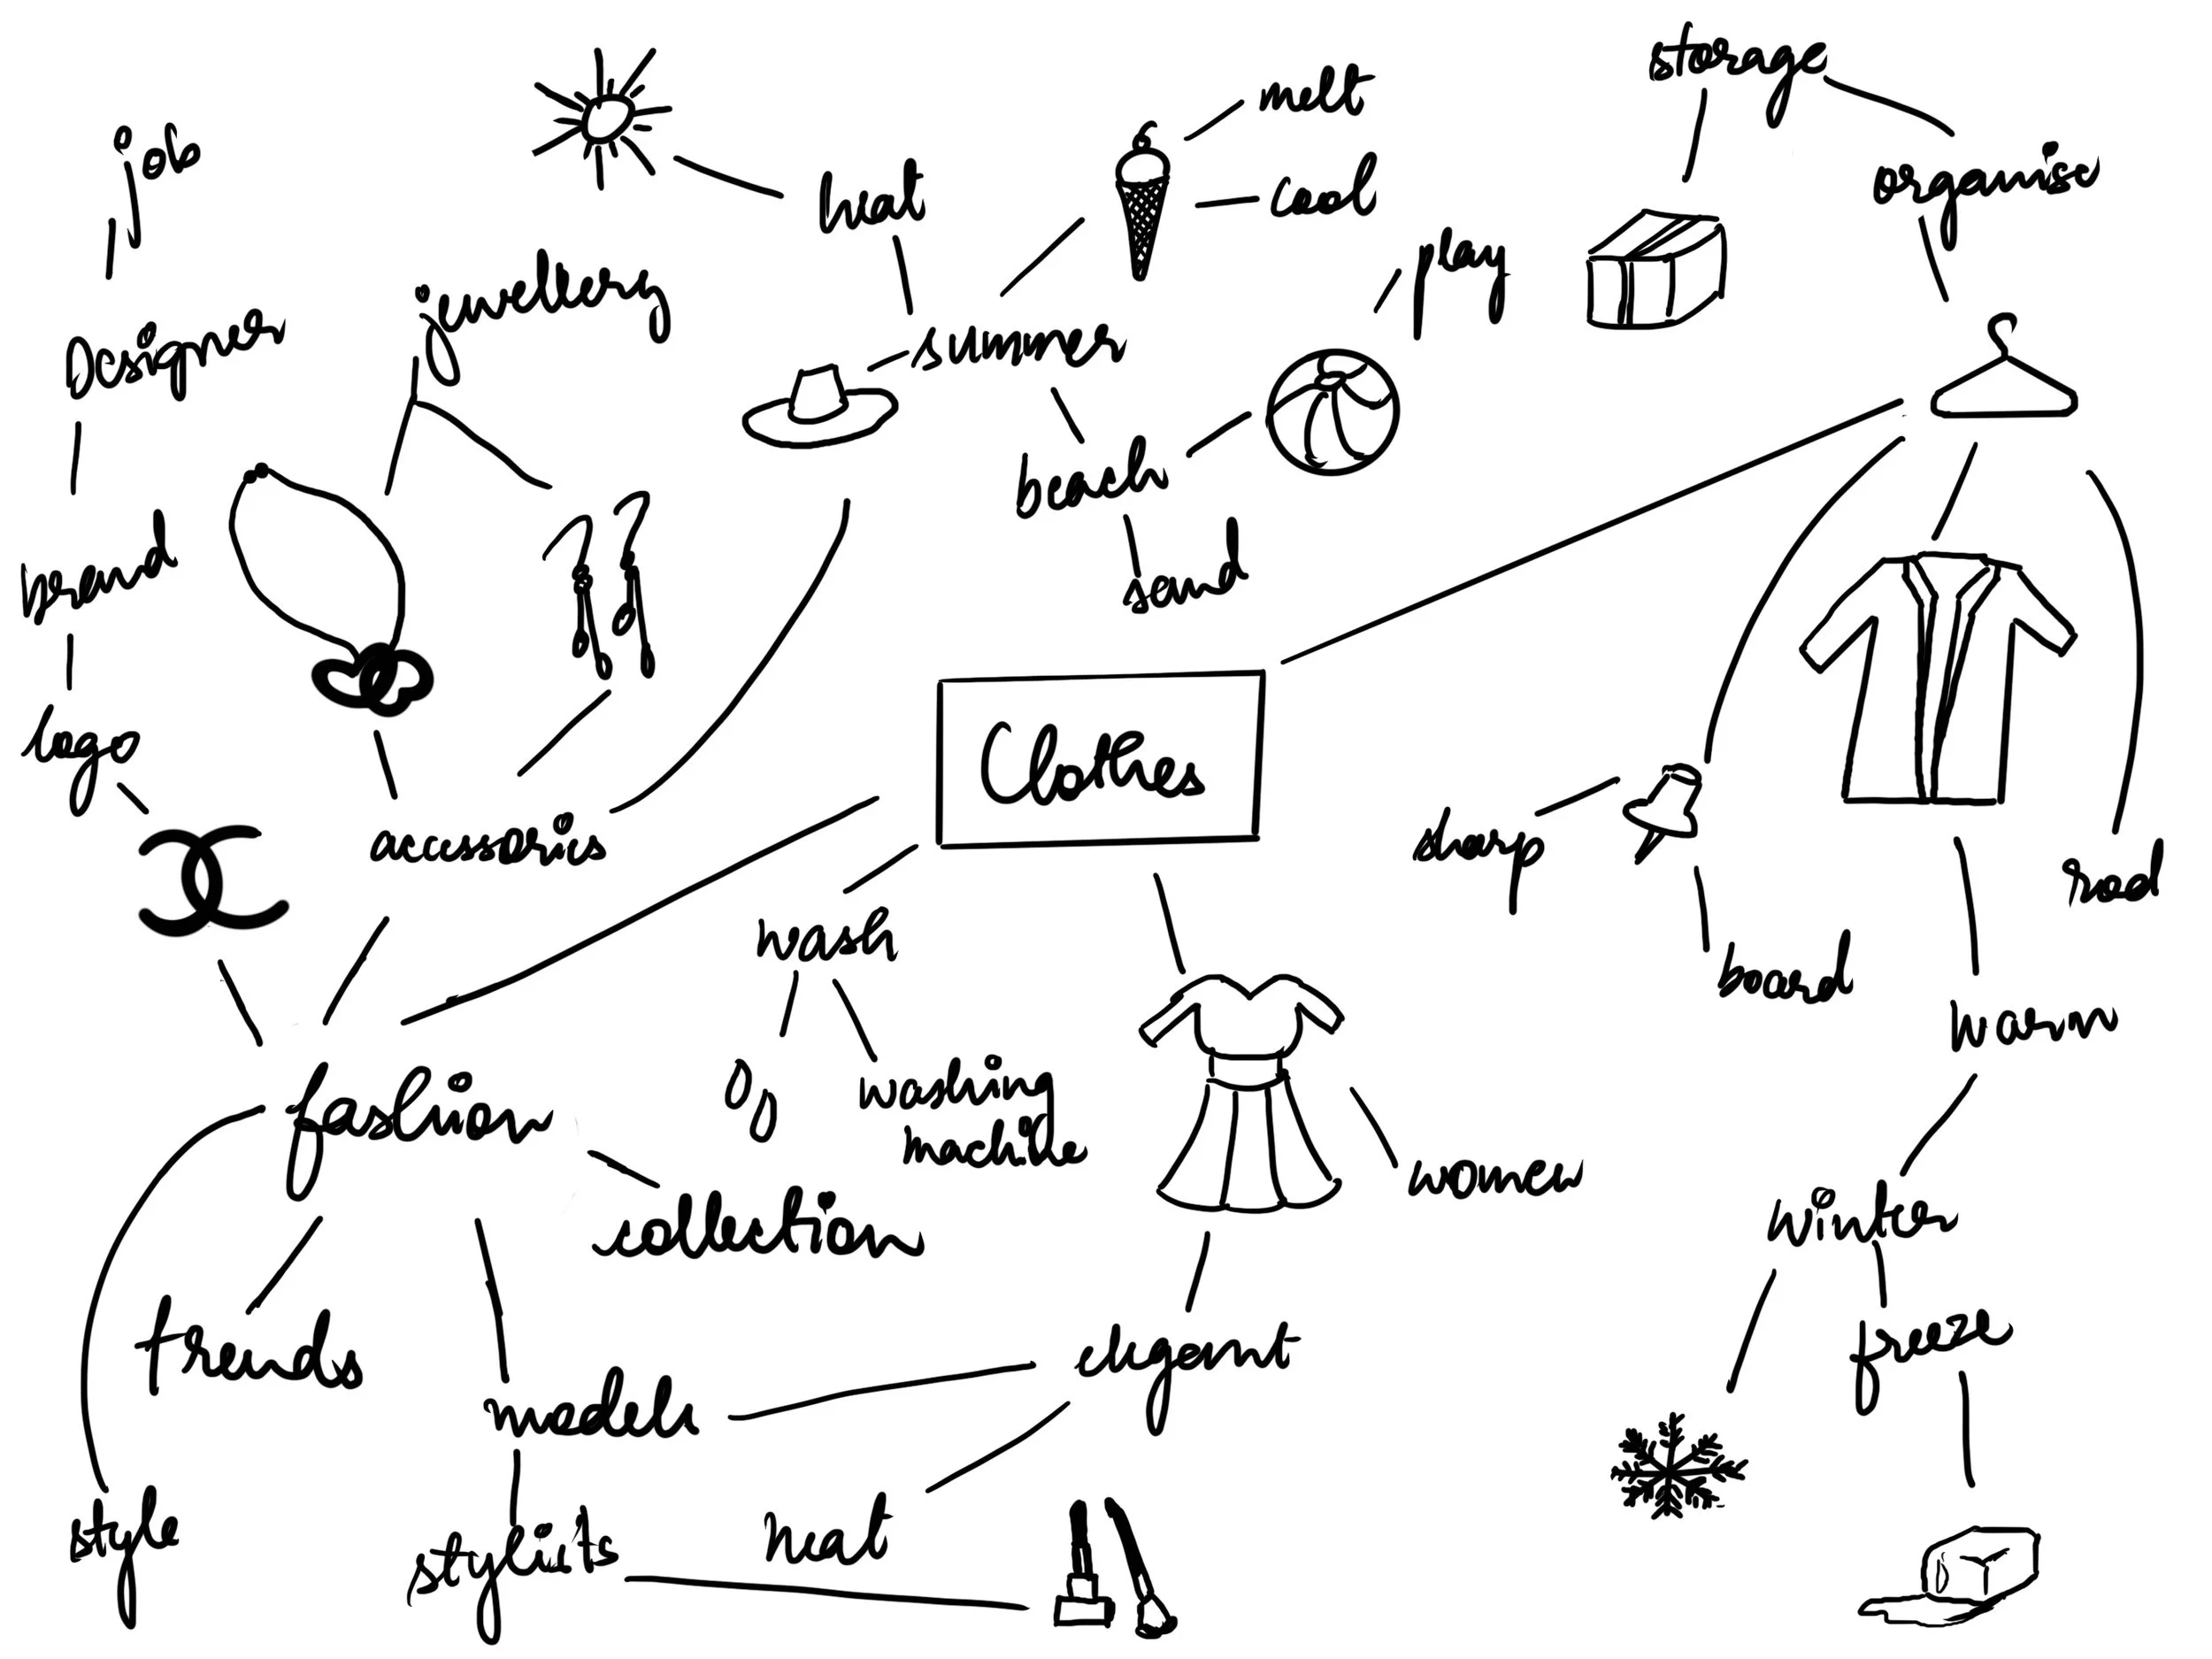 storage
melt
job
organise
cool
heat
play
jewellery
Designer
summer
beach
brand
sand
logo
Clothes
accessories
sharp
rod
wash
board
warm
washing
machine
fashion
women
winter
collection
freeze
trends
elegant
models
style
neat
stylists